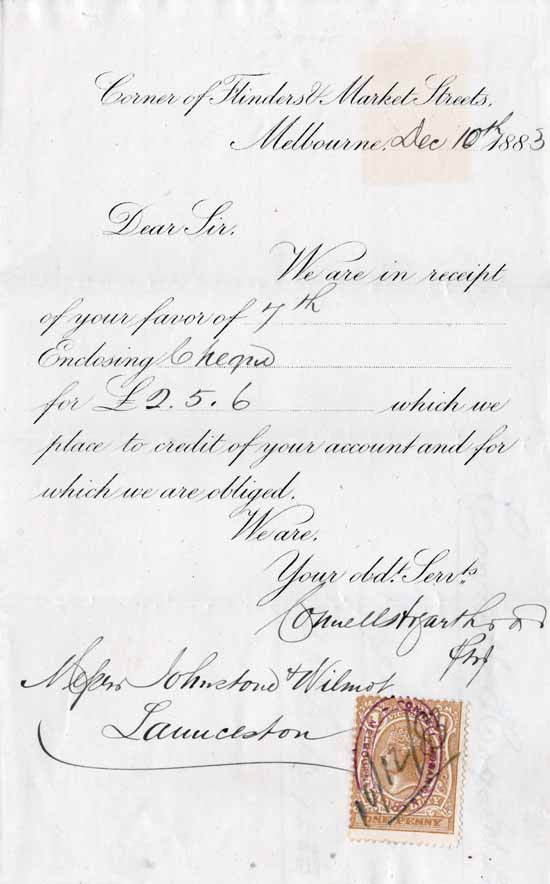 Corner of Flinders & Market Streets,
Melbourne, Dec 10th 1883
Dear Sir,
We are in receipt
of your favor of 7th
Enclosing Cheque
for £2.5.6 which we
place to credit of your account and for
which we are obliged.
We are,
Your obdt. Servts.
Connell Hogarth & Co
Messrs Johnstone & Wilmot
Launceston
10/12/83
ONE PENNY